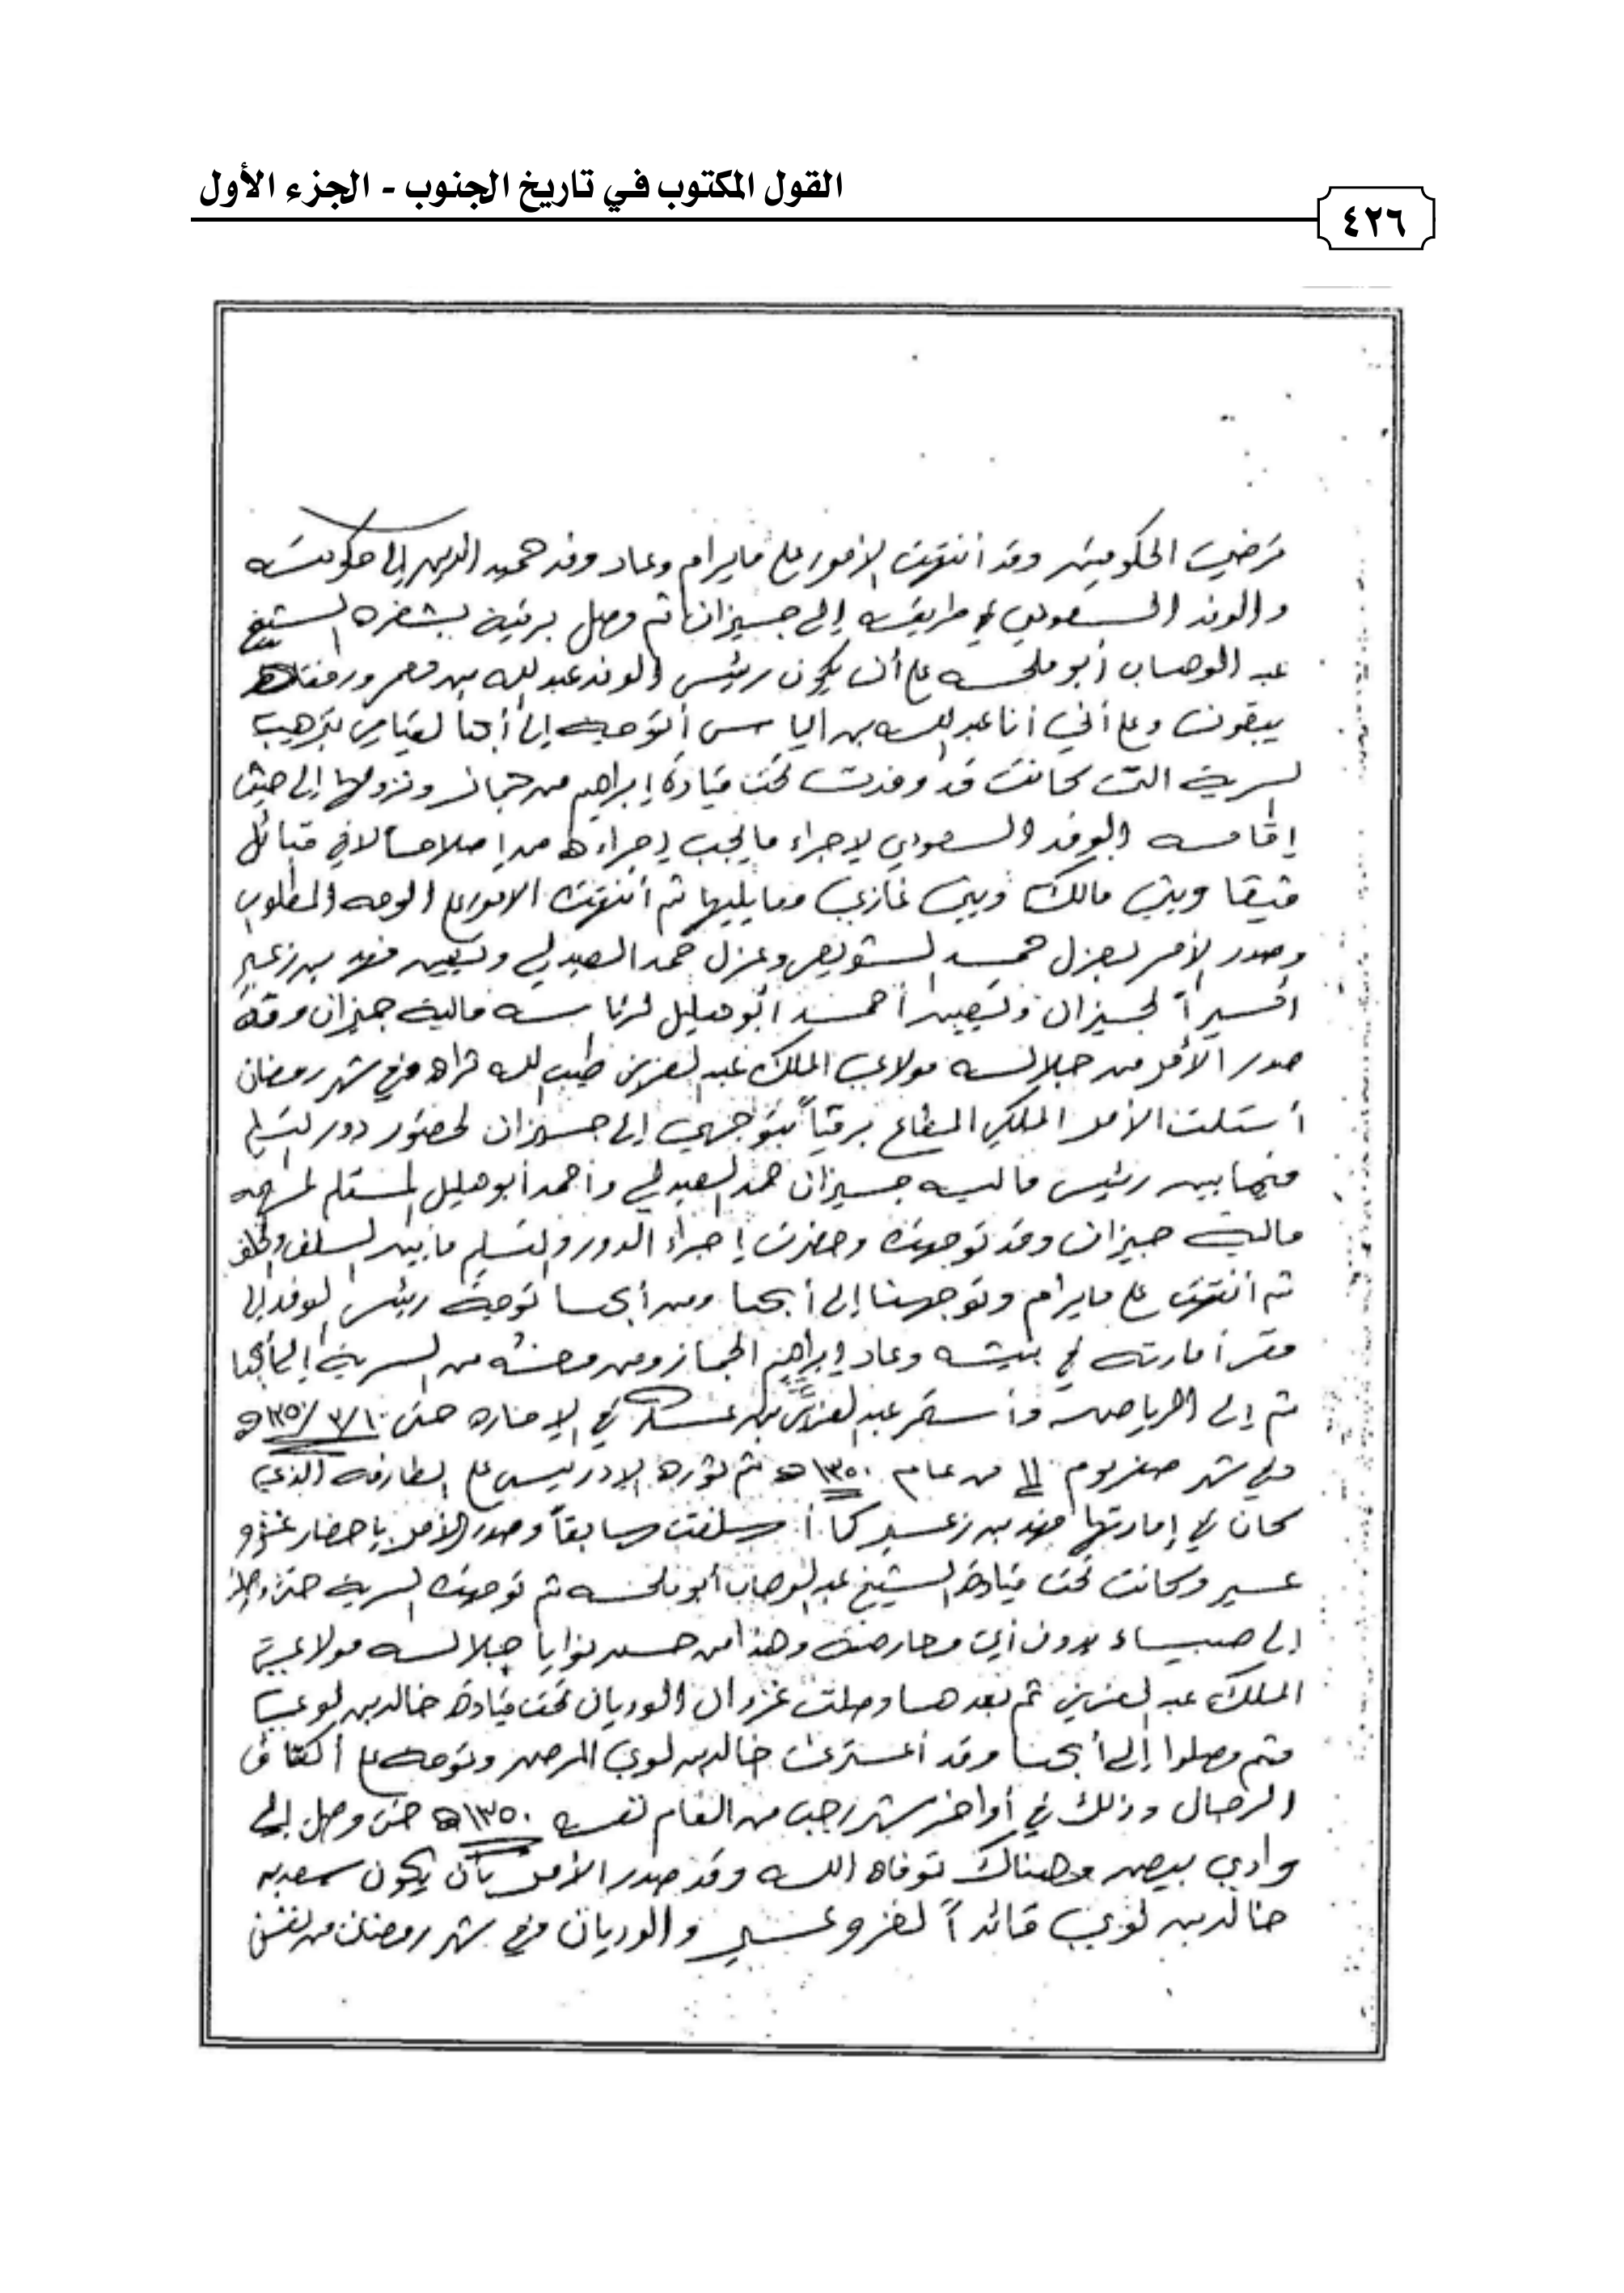 القول المكتوب في تاريخ الجنوب - الجزء الأول
٤٢٦
ترضي الحكومتين وقد أنتهت الأمور على مايرام وعاد وفد حميد الدين إلى حكومته
والوفد السعودي في طريقه إلى جيزان ثم وصل برقية بشفره الشيخ
عبد الوهاب أبو ملحه على أن يكون رئيس الوفد عبد الله بن معمر ورفقته
يبقون وعلى أني أنا عبد الله بن الياس أتوجه إلى أبها لقيامي بترهيب
السرية التي كانت قد وفدت تحت قيادة إبراهيم من جماز ونزولها إلى حيث
إقامة الوفد السعودي لإجراء ما يجب إجراءه من إصلاحات في قبائل
فيفا وبني مالك وبني غازي وما يليها ثم أنتهت الأمور على الوجه المطلوب
وصدر الأمر بعزل حمد الشويعر وعزل حمد العبدلي وتعيين فهد بن زعير
أميراً لجيزان وتعيين أحمد أبو هليل لرئاسة مالية جيزان وقد
صدر الأمر من جلالة مولاي الملك عبد العزيز طيب الله ثراه وفي شهر رمضان
أستلمت الأمر الملكي المطاع برقياً بتوجهي إلى جيزان لحضور دور التسليم
فيما بين رئيس مالية جيزان حمد العبدلي وأحمد أبو هليل المستلم لمهمة
مالية جيزان وقد توجهت وحضرت إجراء الدور والتسليم ما بين السلف والخلف
ثم أنتهت على مايرام وتوجهنا إلى أبها ومن أبها توجه رئيس الوفد إلى
مقر أمارته في بيشه وعاد إبراهيم الجماز ومن معه من السرية إلى أبها
ثم إلى الرياض وأستمر عبد العزيز بن عسكر في الإمارة حتى ١٣٥٠/٣/١٠هـ
وفي شهر صفر يوم ١١ من عام ١٣٥٠هـ تم ثورة الإدريسي على الطارفه الذي
كان في إمارتها فهد بن زعير كما أسلفت سابقاً وصدر الأمر بإحضار غزو
عسير وكانت تحت قيادة الشيخ عبد الوهاب أبو ملحه ثم توجهت السرية حتى
إلى صبياء بدون أي معارضة وهذا من حسن نوايا جلالة مولاي
الملك عبد العزيز ثم بعدها وصلت غزوان الوديان تحت قيادة خالد بن لوي
فتم وصلوا إلى أبها وقد أعترى خالد بن لوي المرض وتوجه على أكتاف
الرجال وذلك في أواخر شهر رجب من العام نفسه ١٣٥٠هـ حتى وصل إلى
وادي بيض وهناك توفاه الله وقد صدر الأمر بأن يكون سعد بن
خالد بن لوي قائداً لغزو عسير والوديان وفي شهر رمضان من نفس